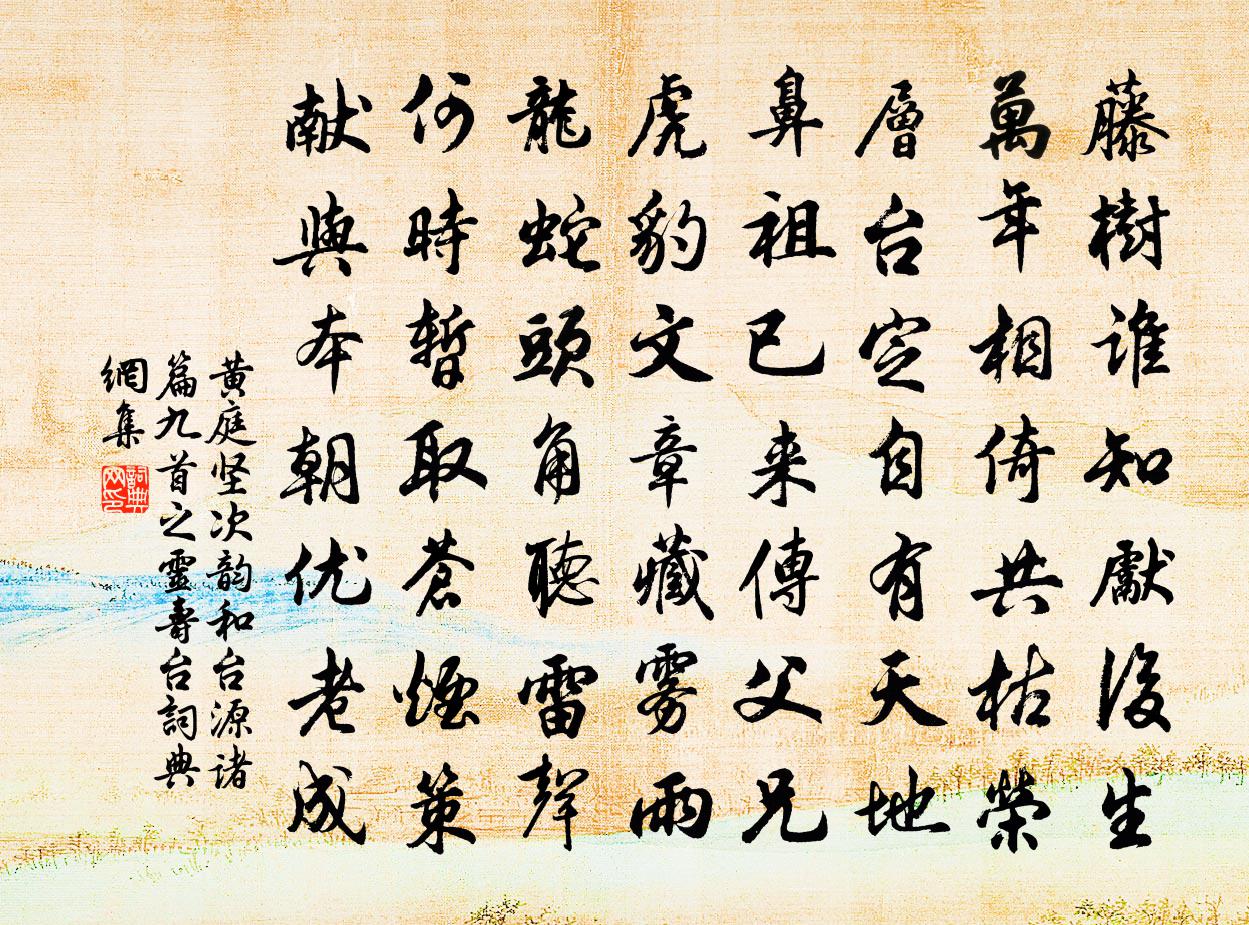 藤樹谁知獻後生
萬年相倚共枯榮
層台定自有天地
鼻祖已来傳父兄
虎豹文章藏雾雨
龍蛇頭角聽雷聲
何時暫取蒼煙策
献與本朝优老成
黄庭坚次韵和台源诸
篇九首之靈壽台詞典
網集
詞典
网印